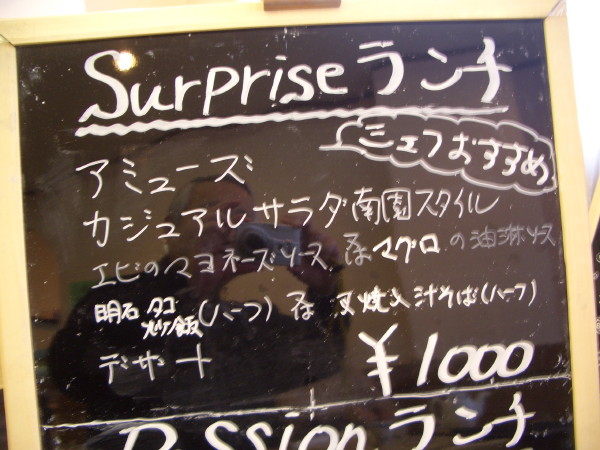 Surprise ランチ
シェフおすすめ
アミューズ
カジュアルサラダ南園スタイル
エビのマヨネーズソース 又は マグロの油淋ソース
明石タコ炒飯(ハーフ) 又は 叉焼入汁そば(ハーフ)
デザート
¥1000
Passion ランチ